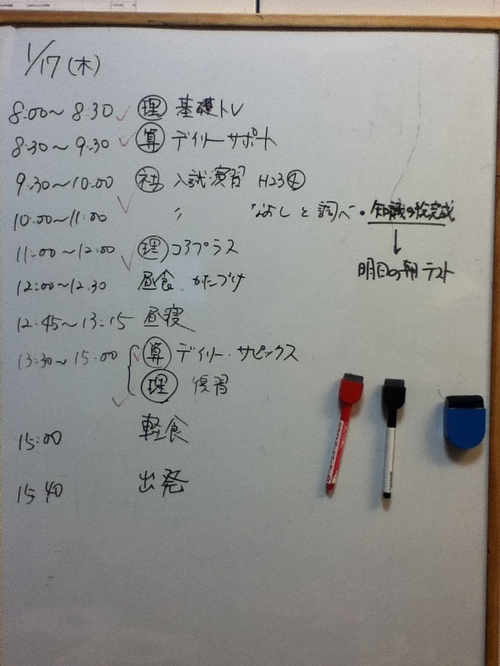 1/17(木)
8:00〜8:30 理 基礎トレ
8:30〜9:30 算 デイリーサポート
9:30〜10:00 社 入試演習 H23
10:00〜11:00 〃 なおしと調べ・知識の 完成
↓
明日の朝テスト
11:00〜12:00 理 コアプラス
12:00〜12:30 昼食 かたづけ
12:45〜13:15 昼寝
13:30〜15:00 算 デイリー・サピックス
理 復習
15:00 軽食
15:40 出発